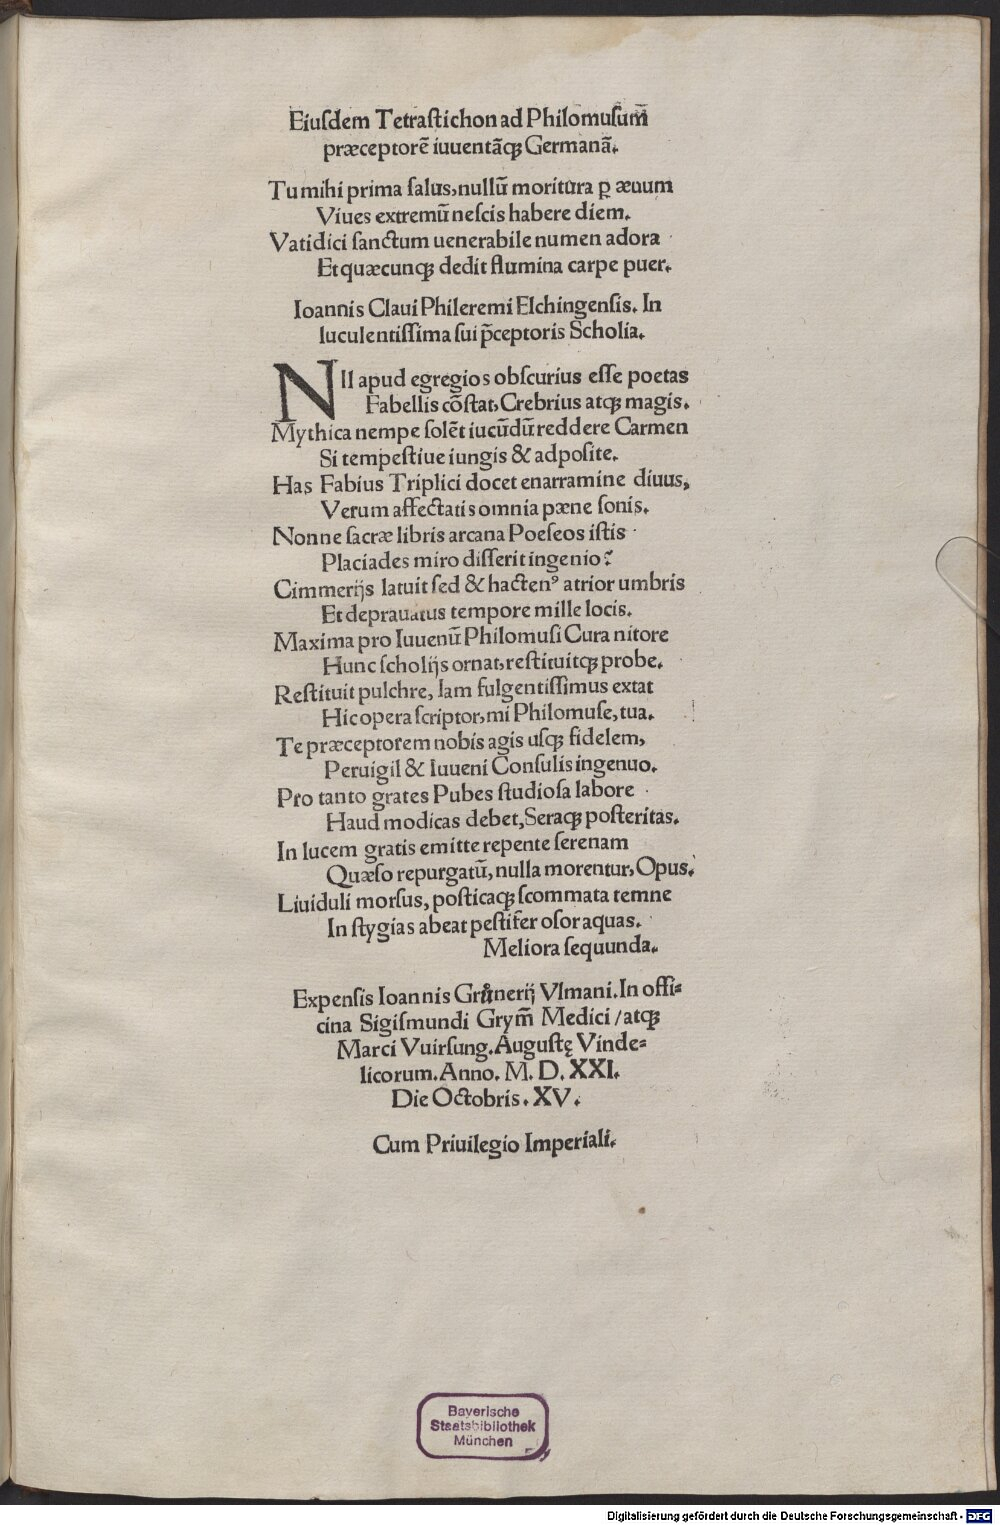 Eiuſdem Tetraſtichon ad Philomuſum̄
præceptorē iuuentāqȝ Germanā.
Tu mihi prima ſalus, nullū moritura ꝑ æuum
Viues extremū neſcis habere diem.
Vatidici ſanctum uenerabile numen adora
Et quæcunqȝ dedit flumina carpe puer.
Ioannis Claui Phileremi Elchingenſis. In
luculentiſſima ſui p̄ceptoris Scholia.
NIl apud egregios obſcurius eſſe poetas
Fabellis cōſtat, Crebrius atqȝ magis.
Mythica nempe ſolēt iucūdū reddere Carmen
Si tempeſtiue iungis & adpoſite.
Has Fabius Triplici docet enarramine diuus,
Verum affectatis omnia pæne ſonis.
Nonne ſacræ libris arcana Poeſeos iſtis
Placiades miro diſſerit ingenio?
Cimmerijs latuit ſed & hactenꝰ atrior umbris
Et deprauatus tempore mille locis.
Maxima pro Iuuenū Philomuſi Cura nitore
Hunc ſcholijs ornat, reſtituitqȝ probe.
Reſtituit pulchre, Iam fulgentiſſimus extat
Hic opera ſcriptor, mi Philomuſe, tua.
Te præceptorem nobis agis uſqȝ fidelem,
Peruigil & Iuueni Conſulis ingenuo.
Pro tanto grates Pubes ſtudioſa labore
Haud modicas debet, Seraqȝ poſteritas.
In lucem gratis emitte repente ſerenam
Quæſo repurgatū, nulla morentur, Opus.
Liuiduli morſus, poſticaqȝ ſcommata temne
In ſtygias abeat peſtifer oſor aquas.
Meliora ſequunda.
Expenſis Ioannis Grůnerij Vlmani. In offi⸗
cina Sigiſmundi Grym̄ Medici / atqȝ
Marci Vuirſung. Auguſtę Vinde⸗
licorum. Anno. M. D. XXI.
Die Octobris. XV.
Cum Priuilegio Imperiali.
Bayerische
Staatsbibliothek
München
Digitalisierung gefördert durch die Deutsche Forschungsgemeinschaft - DFG